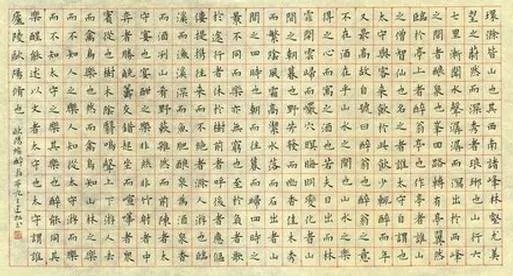 環滁皆山也其西南諸峰林壑尤美
望之蔚然而深秀者琅琊也山行六
七里漸聞水聲潺潺而瀉出於兩峯
之間者釀泉也峯回路轉有亭翼然
臨於泉上者醉翁亭也作亭者誰山
之僧智仙也名之者誰太守自謂也
太守與客來飲於此飲少輒醉而年
又最高故自號曰醉翁也醉翁之意
不在酒在乎山水之間也山水之樂
得之心而寓之酒也若夫日出而林
霏開雲歸而巖穴暝晦明變化者山
間之朝暮也野芳發而幽香佳木秀
而繁陰風霜高潔水落而石出者山
間之四時也朝而往暮而歸四時之
景不同而樂亦無窮也至於負者歌
於途行者休於樹前者呼後者應傴
僂提攜往來而不絕者滁人遊也臨
溪而漁溪深而魚肥釀泉為酒泉香
而酒洌山肴野蔌雜然而前陳者太
守宴也宴酣之樂非絲非竹射者中
弈者勝觥籌交錯起坐而諠譁者眾
賓從也樹林陰翳鳴聲上下遊人去
而禽鳥樂也然而禽鳥知山林之樂
而不知人之樂人知從太守遊而樂
而不知太守之樂其樂也醉能同其
樂醒能述以文者太守也太守謂誰
廬陵歐陽脩也
歐陽脩醉翁亭記